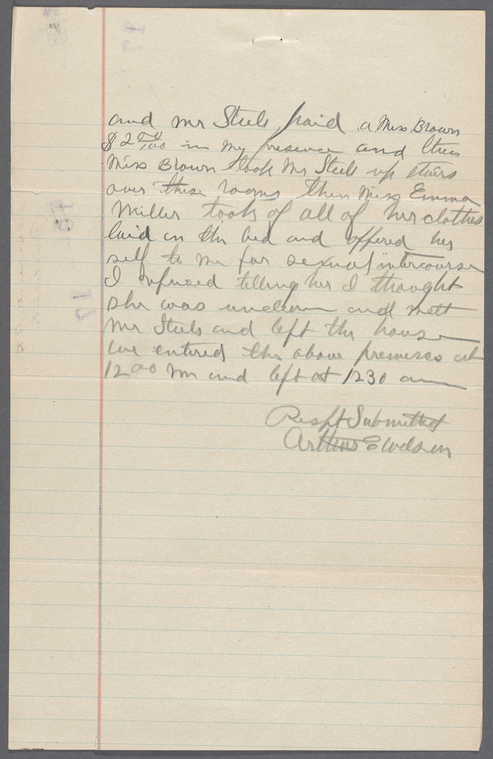 and Mr Steele paid a Miss Brown
$2 00/100 in my presence and then
Miss Brown took Mr Steele up stairs
over these rooms then Miss Emma
Miller took of all of her clothes
laid on the bed and offered her
self to me for sexual intercourse
I refused telling her I thought
she was unclean and mett
Mr Steele and left the house
we entered the above premises at
12 00 M and left at 12 30 am
Respt Submitted
Arthur E Wilson